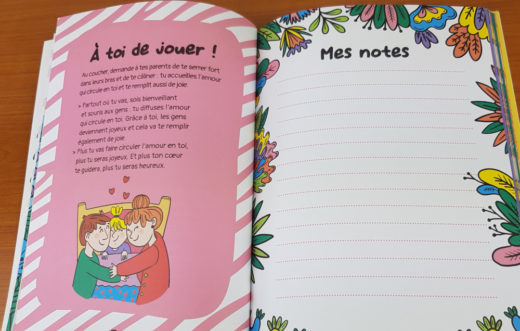 À toi de jouer !
Au coucher, demande à tes parents de te serrer fort
dans leurs bras et de te câliner : tu accueilles l'amour
qui circule en toi et te remplit aussi de joie.
> Partout où tu vas, sois bienveillant
et souris aux gens : tu diffuses l'amour
qui circule en toi. Grâce à toi, les gens
deviennent joyeux et cela va te remplir
également de joie
> Plus tu vas faire circuler l'amour en toi,
plus tu seras joyeux. Et plus ton cœur
te guidera, plus tu seras heureux.
Mes notes